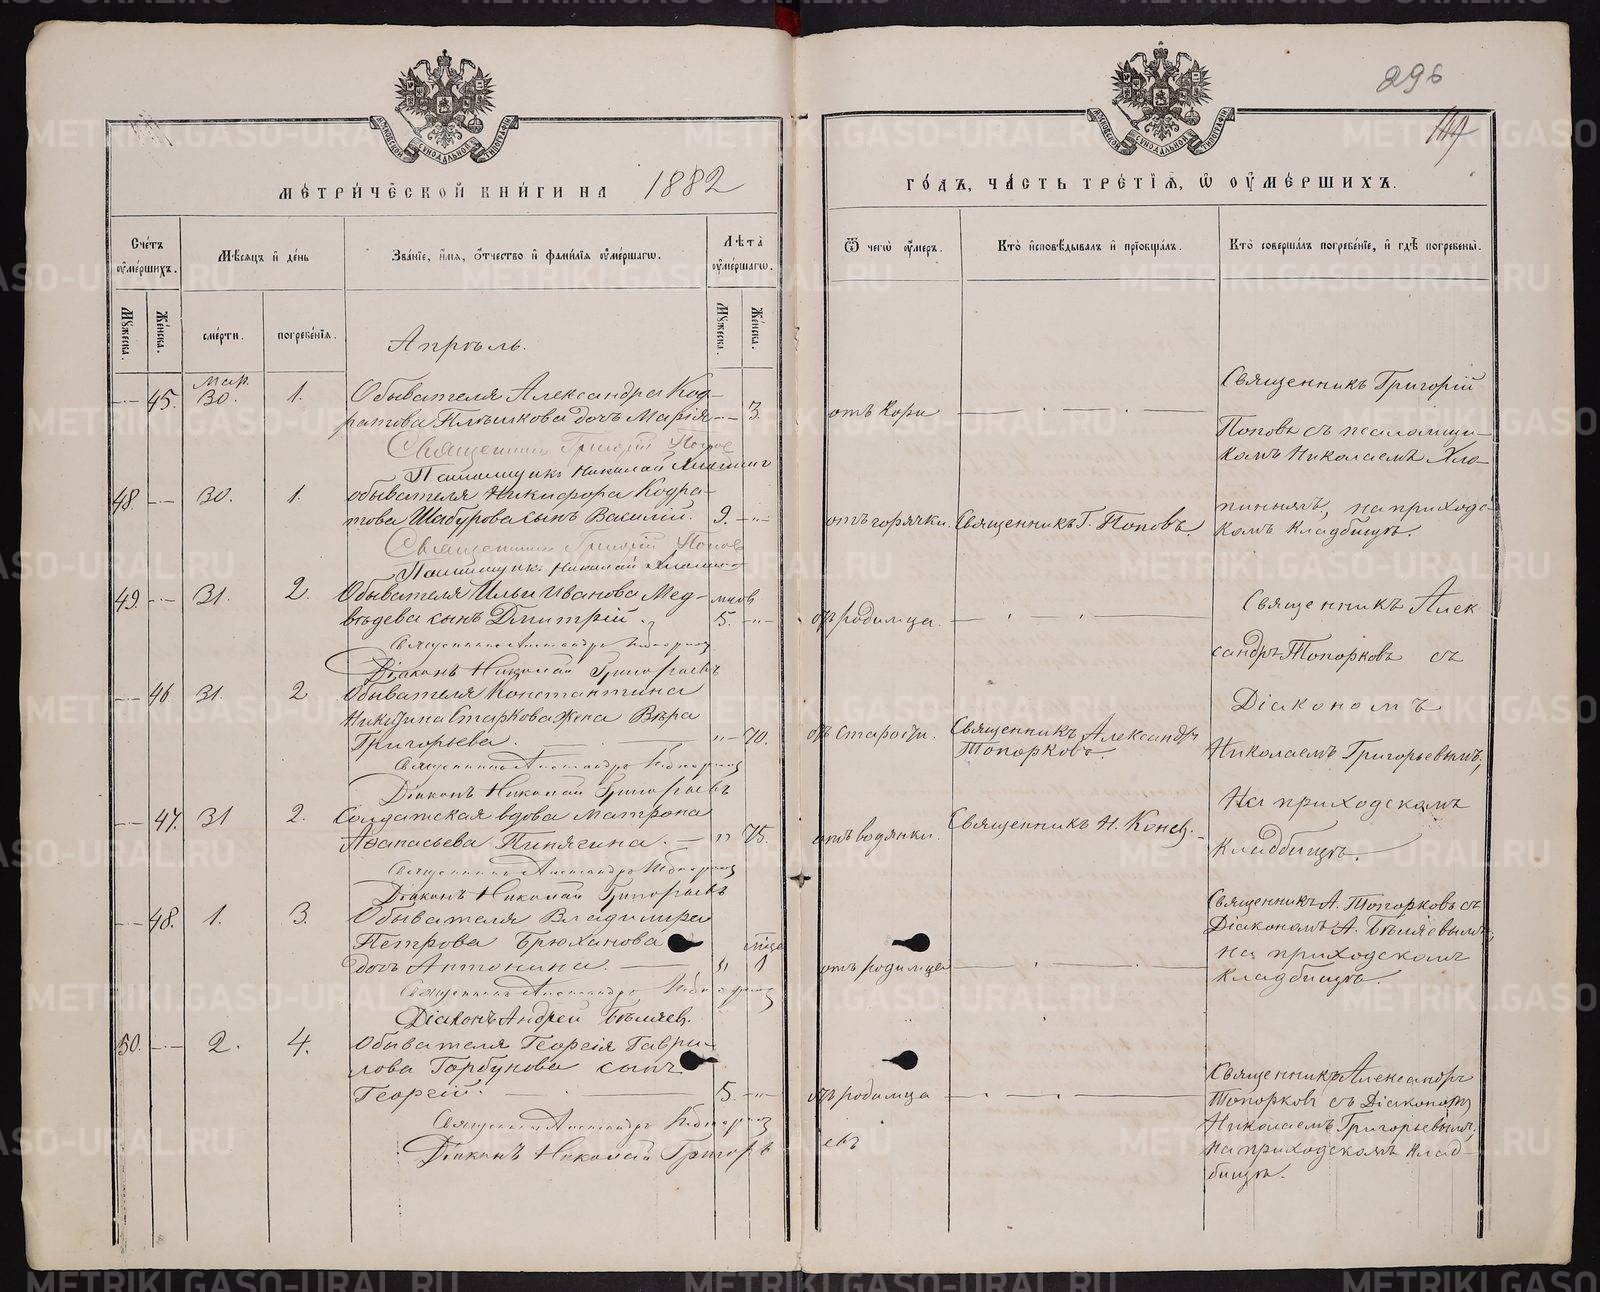 296
МЕТРИЧЕСКОЙ КНИГИ НА 1882
ГОДЪ, ЧАСТЬ ТРЕТІЯ, Ѿ ОУМЕРШИХЪ.
Счетъ оумершихъ.
Мѣсяцъ и день
Званіе, имя, отчество и фамилія оумершагѡ.
Лѣта оумершагѡ.
Ѿ чегѡ оумеръ.
Кто исповѣдывалъ и пріобщалъ.
Кто совершалъ погребеніе, и гдѣ погребены.
Мужеска.
Женска.
смерти.
погребенія.
Мужеска.
Женска.
Апрѣль.
Мар.
45. 30. 1. Обывателя Александра Код-
ратова дочь Марія 3. отъ кори
Священникъ Григорій Попов
Псаломщикъ Николай
Священникъ Григорій
Поповъ съ псаломщи-
комъ Николаемъ Хло-
пинымъ, на приходс-
комъ кладбищѣ.
48. 30. 1. обывателя Никифора Кодра-
това Шабурова сынъ Василій. 9. отъ горячки. Священникъ Г. Поповъ.
Священникъ Григорій Попов
Псаломщикъ Николай
49. 31. 2. Обывателя Ильи Иванова Мед- мцов
вѣдева сынъ Дмитрій. 5. отъ родимца.
Священникъ Александръ Топорков
Діаконъ Николай Григорьевъ
Священникъ Алек
сандръ Топорковъ съ
Діакономъ
Николаемъ Григорьевымъ,
На приходскомъ
кладбищѣ.
46. 31. 2 Обывателя Константина
Никитина Старкова жена Вѣра
Григорьева. 70. отъ старости. Священникъ Александръ
Топорковъ.
Священникъ Александръ Топорков
Діаконъ Николай Григорьевъ
47. 31 2. Солдатская вдова Матрона
Афанасьева Пинягина. 75. отъ водянки. Священникъ Н. Конев.
Священникъ Александръ Топорков
Діаконъ Николай Григорьевъ
48. 1. 3. Обывателя Владимира
Петрова Брюханова
дочь Антонина. 1 отъ родимца
Священникъ Александръ Топорков
Діаконъ Андрей Бѣляев.
Священникъ А. Топорковъ съ
Діакономъ А. Бѣляевымъ,
на приходскомъ
кладбищѣ.
50. 2. 4. Обывателя Георгія Гаври-
лова Горбунова сынъ
Георгій. 5. отъ родимца
Священникъ Александръ Топорков
Діаконъ Николай Григорьевъ
Священникъ Александръ
Топорковъ съ Діакономъ
Николаемъ Григорьевымъ,
на приходскомъ клад-
бищѣ.